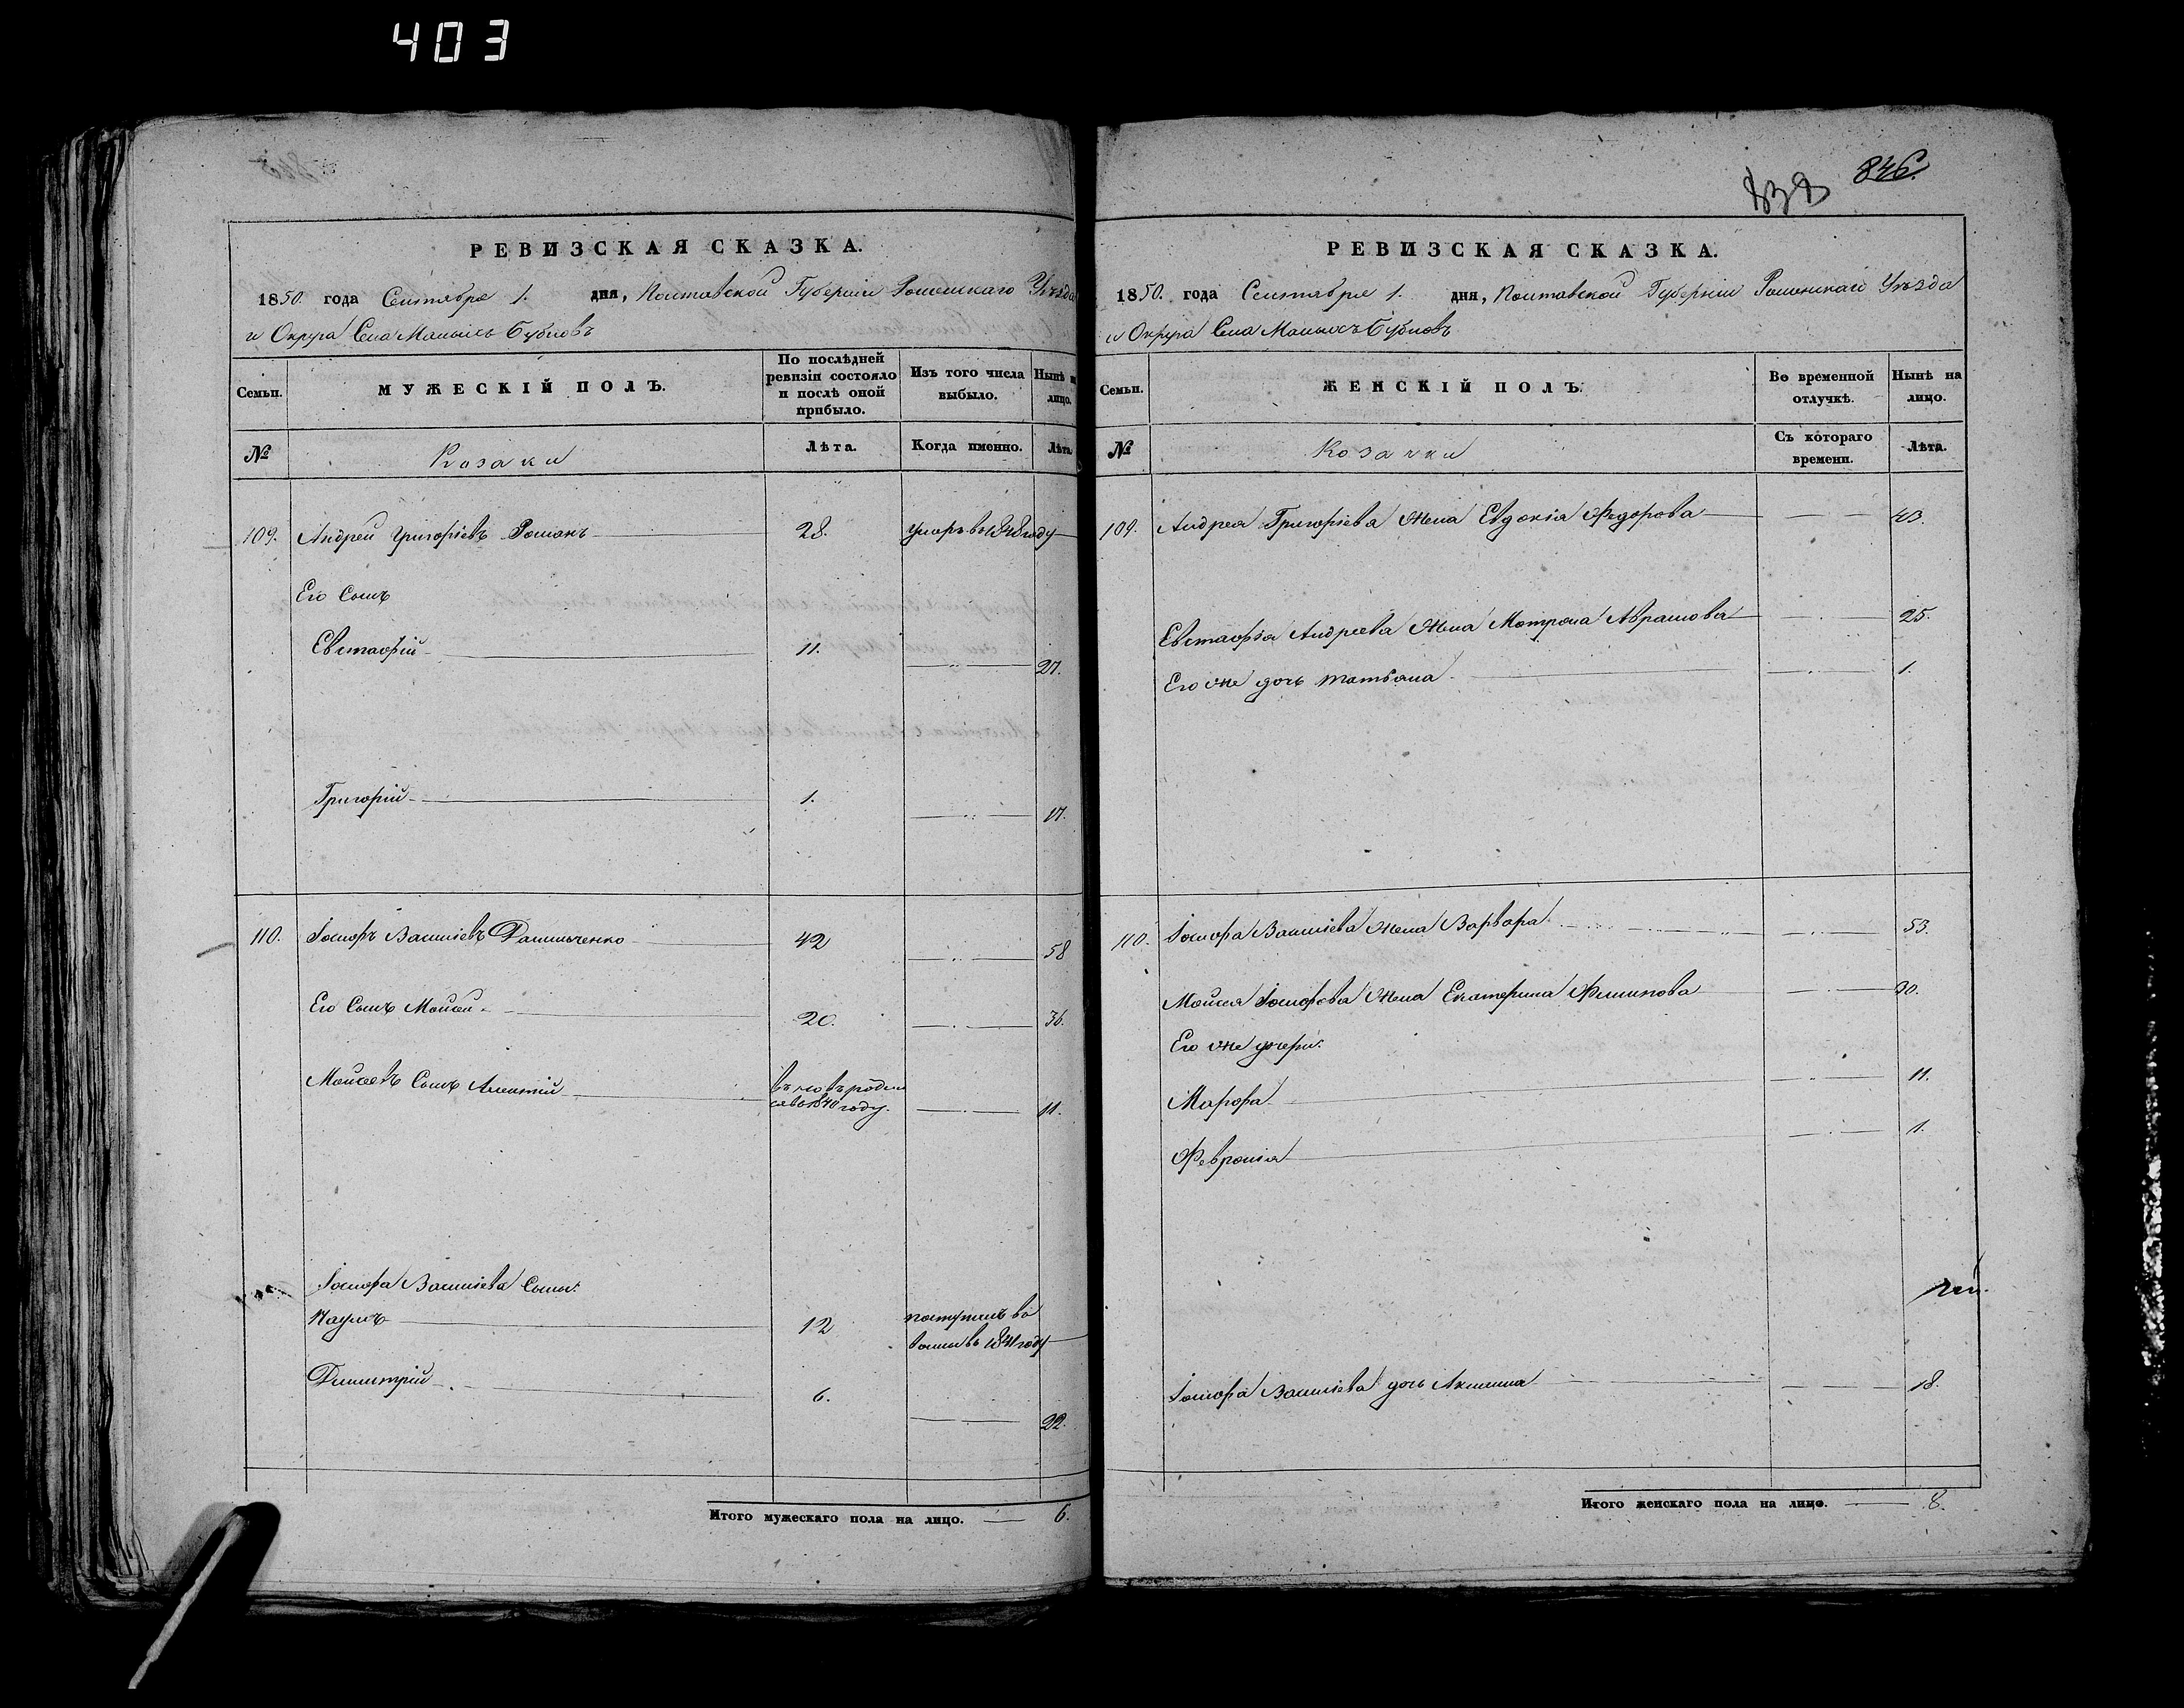 403
РЕВИЗСКАЯ СКАЗКА.
1850. года Сентября 1. дня, Полтавской Губерніи Роменскаго Уѣзда
и Округа Села Малыхъ Бубновъ
Семьи.
МУЖЕСКІЙ ПОЛЪ.
По послѣдней ревизіи состояло и послѣ оной прибыло.
Изъ того числа выбыло.
Нынѣ на лицо.
№
Козаки
Лѣта.
Когда именно.
Лѣта.
109. Андрей Григоріевъ Романъ 28. умеръ въ 1848 году
Его Сынъ
Евстафій 11. 27.
Григорій 1. 17.
110. Іосифъ Василіевъ Данильченко 42 58
Его Сынъ Мойсей 20. 36.
Мойсеевъ Сынъ Леонтій въ новъ родился въ 1840 году. 11.
Іосифа Василіева Сыны:
Наумъ 12 поступилъ во
воины въ 1841 году
Димитрій 6. 22.
Итого мужескаго пола на лицо. 6.
838 846.
РЕВИЗСКАЯ СКАЗКА.
1850. года Сентября 1. дня, Полтавской Губерніи Роменскаго Уѣзда
и Округа Села Малыхъ Бубновъ
Семьи.
ЖЕНСКІЙ ПОЛЪ.
Во временной отлучкѣ.
Нынѣ на лицо.
№
Козачки
Съ котораго времени.
Лѣта.
109. Андрея Григоріева Жена Евдокія Федорова 43.
Евстафія Андреева Жена Мотрона Абрамова 25.
Его же дочь Татьяна 1.
110. Іосифа Василіева Жена Варвара 53.
Мойсея Іосифова Жена Екатерина Филипова 30.
Его же дочери:
Марфа 11.
Февронія 1.
Іосифа Василіева дочь Аксинія 18.
Итого женскаго пола на лицо. 8.